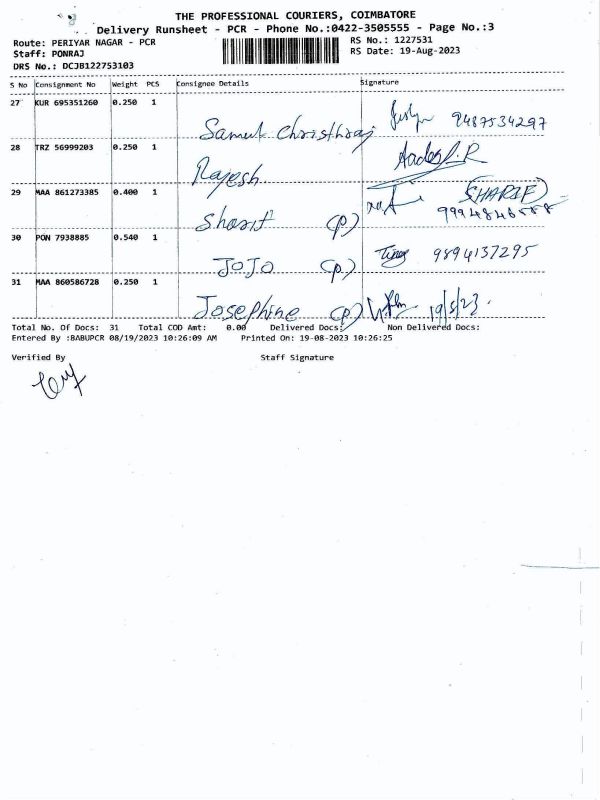 THE PROFESSIONAL COURIERS, COIMBATORE
Delivery Runsheet - PCR - Phone No.:0422-3505555 - Page No.:3
Route: PERIYAR NAGAR - PCR
RS No.: 1227531
Staff: PONRAJ
RS Date: 19-Aug-2023
DRS No.: DCJB122753103
S No Consignment No Weight PCS Consignee Details Signature
27 KUR 695351260 0.250 1
Samuel Christhraj 9487534297
28 TRZ 56999203 0.250 1
Rajesh
29 MAA 861273385 0.400 1
Sharif (P) (SHARIF)
30 PON 7938885 0.540 1
JoJo (P) 9894137295
31 MAA 860586728 0.250 1
Josephine (P)
Total No. Of Docs: 31 Total COD Amt: 0.00 Delivered Docs: Non Delivered Docs:
Entered By :BABUPCR 08/19/2023 10:26:09 AM Printed On: 19-08-2023 10:26:25
Verified By Staff Signature